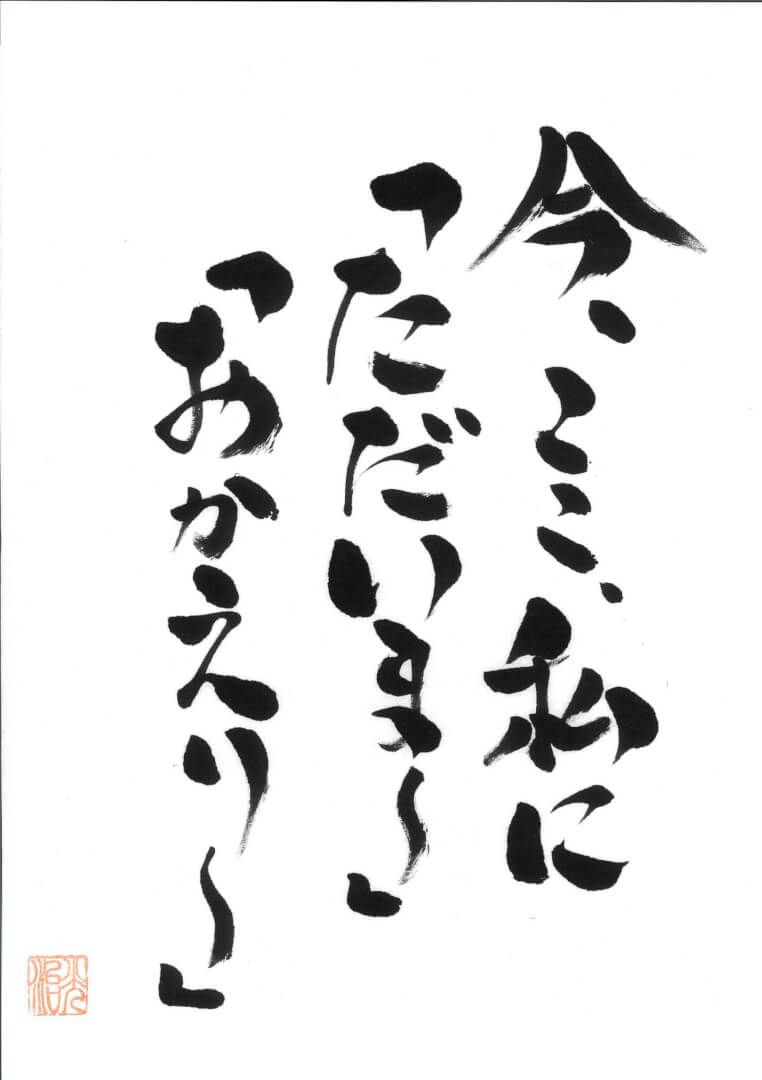 今、ここ、私に
「ただいま〜」
「おかえり〜」